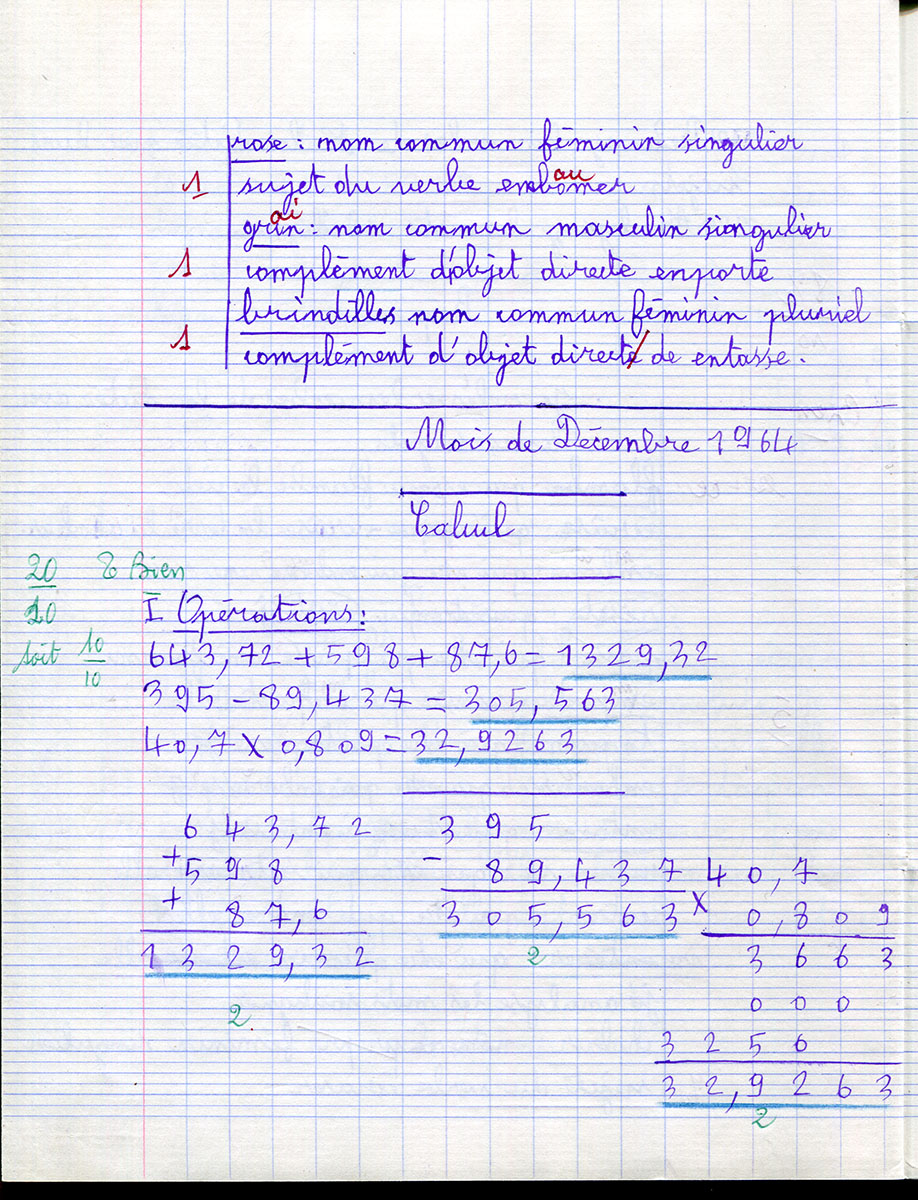 rose : nom commun féminin singulier
1 sujet du verbe embomer
au
ai
grin : nom commun masculin siongulier
1 complément d'objet directe enporte
brindilles nom commun féminin pluriel
1 complément d'objet directe de entasse.
Mois de Décembre 1964
Calcul
20 T Bien
20
soit 10
10
I Opérations :
643,72 + 598 + 87,6 = 1329,32
395 - 89,437 = 305,563
40,7 x 0,809 = 32,9263
643,72
+ 598
+ 87,6
1329,32
2
395
- 89,437
305,563
2
40,7
x 0,809
3663
000
3256
32,9263
2